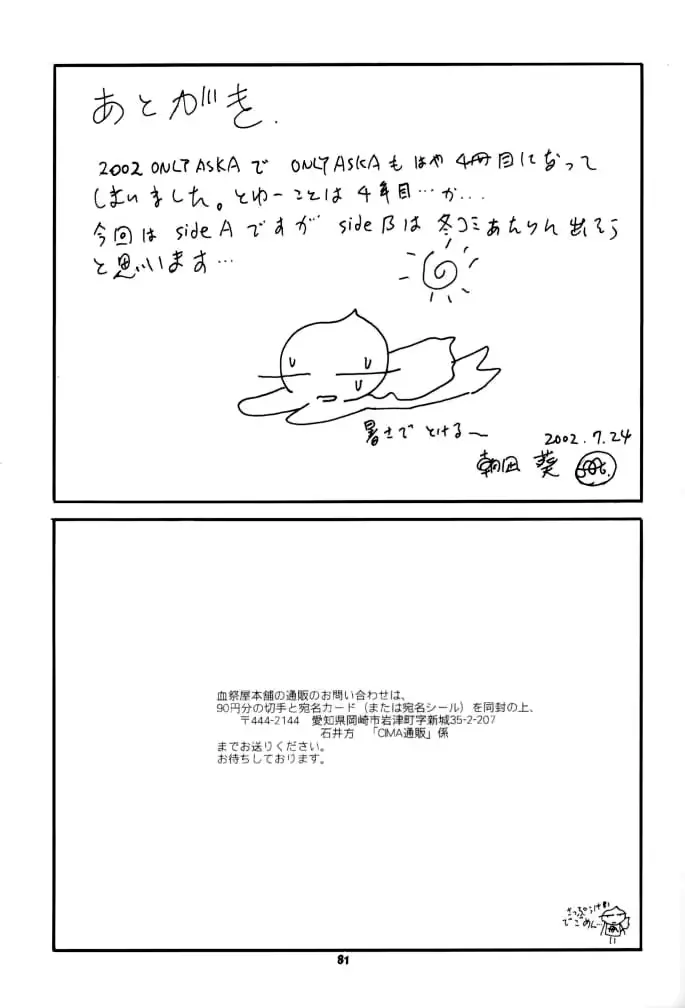 あとがき.
2002 ONLY ASKAで ONLY ASKAもはや4冊目になって
しまいました。とゆーことは4年目…か…
今回は sideAですが sideBは冬コミあたりに出そう
と思います…
暑さで とける〜
2002.7.24
朝凪 葵
血祭屋本舗の通販のお問い合わせは、
90円分の切手と宛名カード（または宛名シール）を同封の上、
〒444-2144　愛知県岡崎市岩津町字新城35-2-207
石井方　「CIMA通販」係
までお送りください。
お待ちしております。
さっぷうけい
でごめん…
81